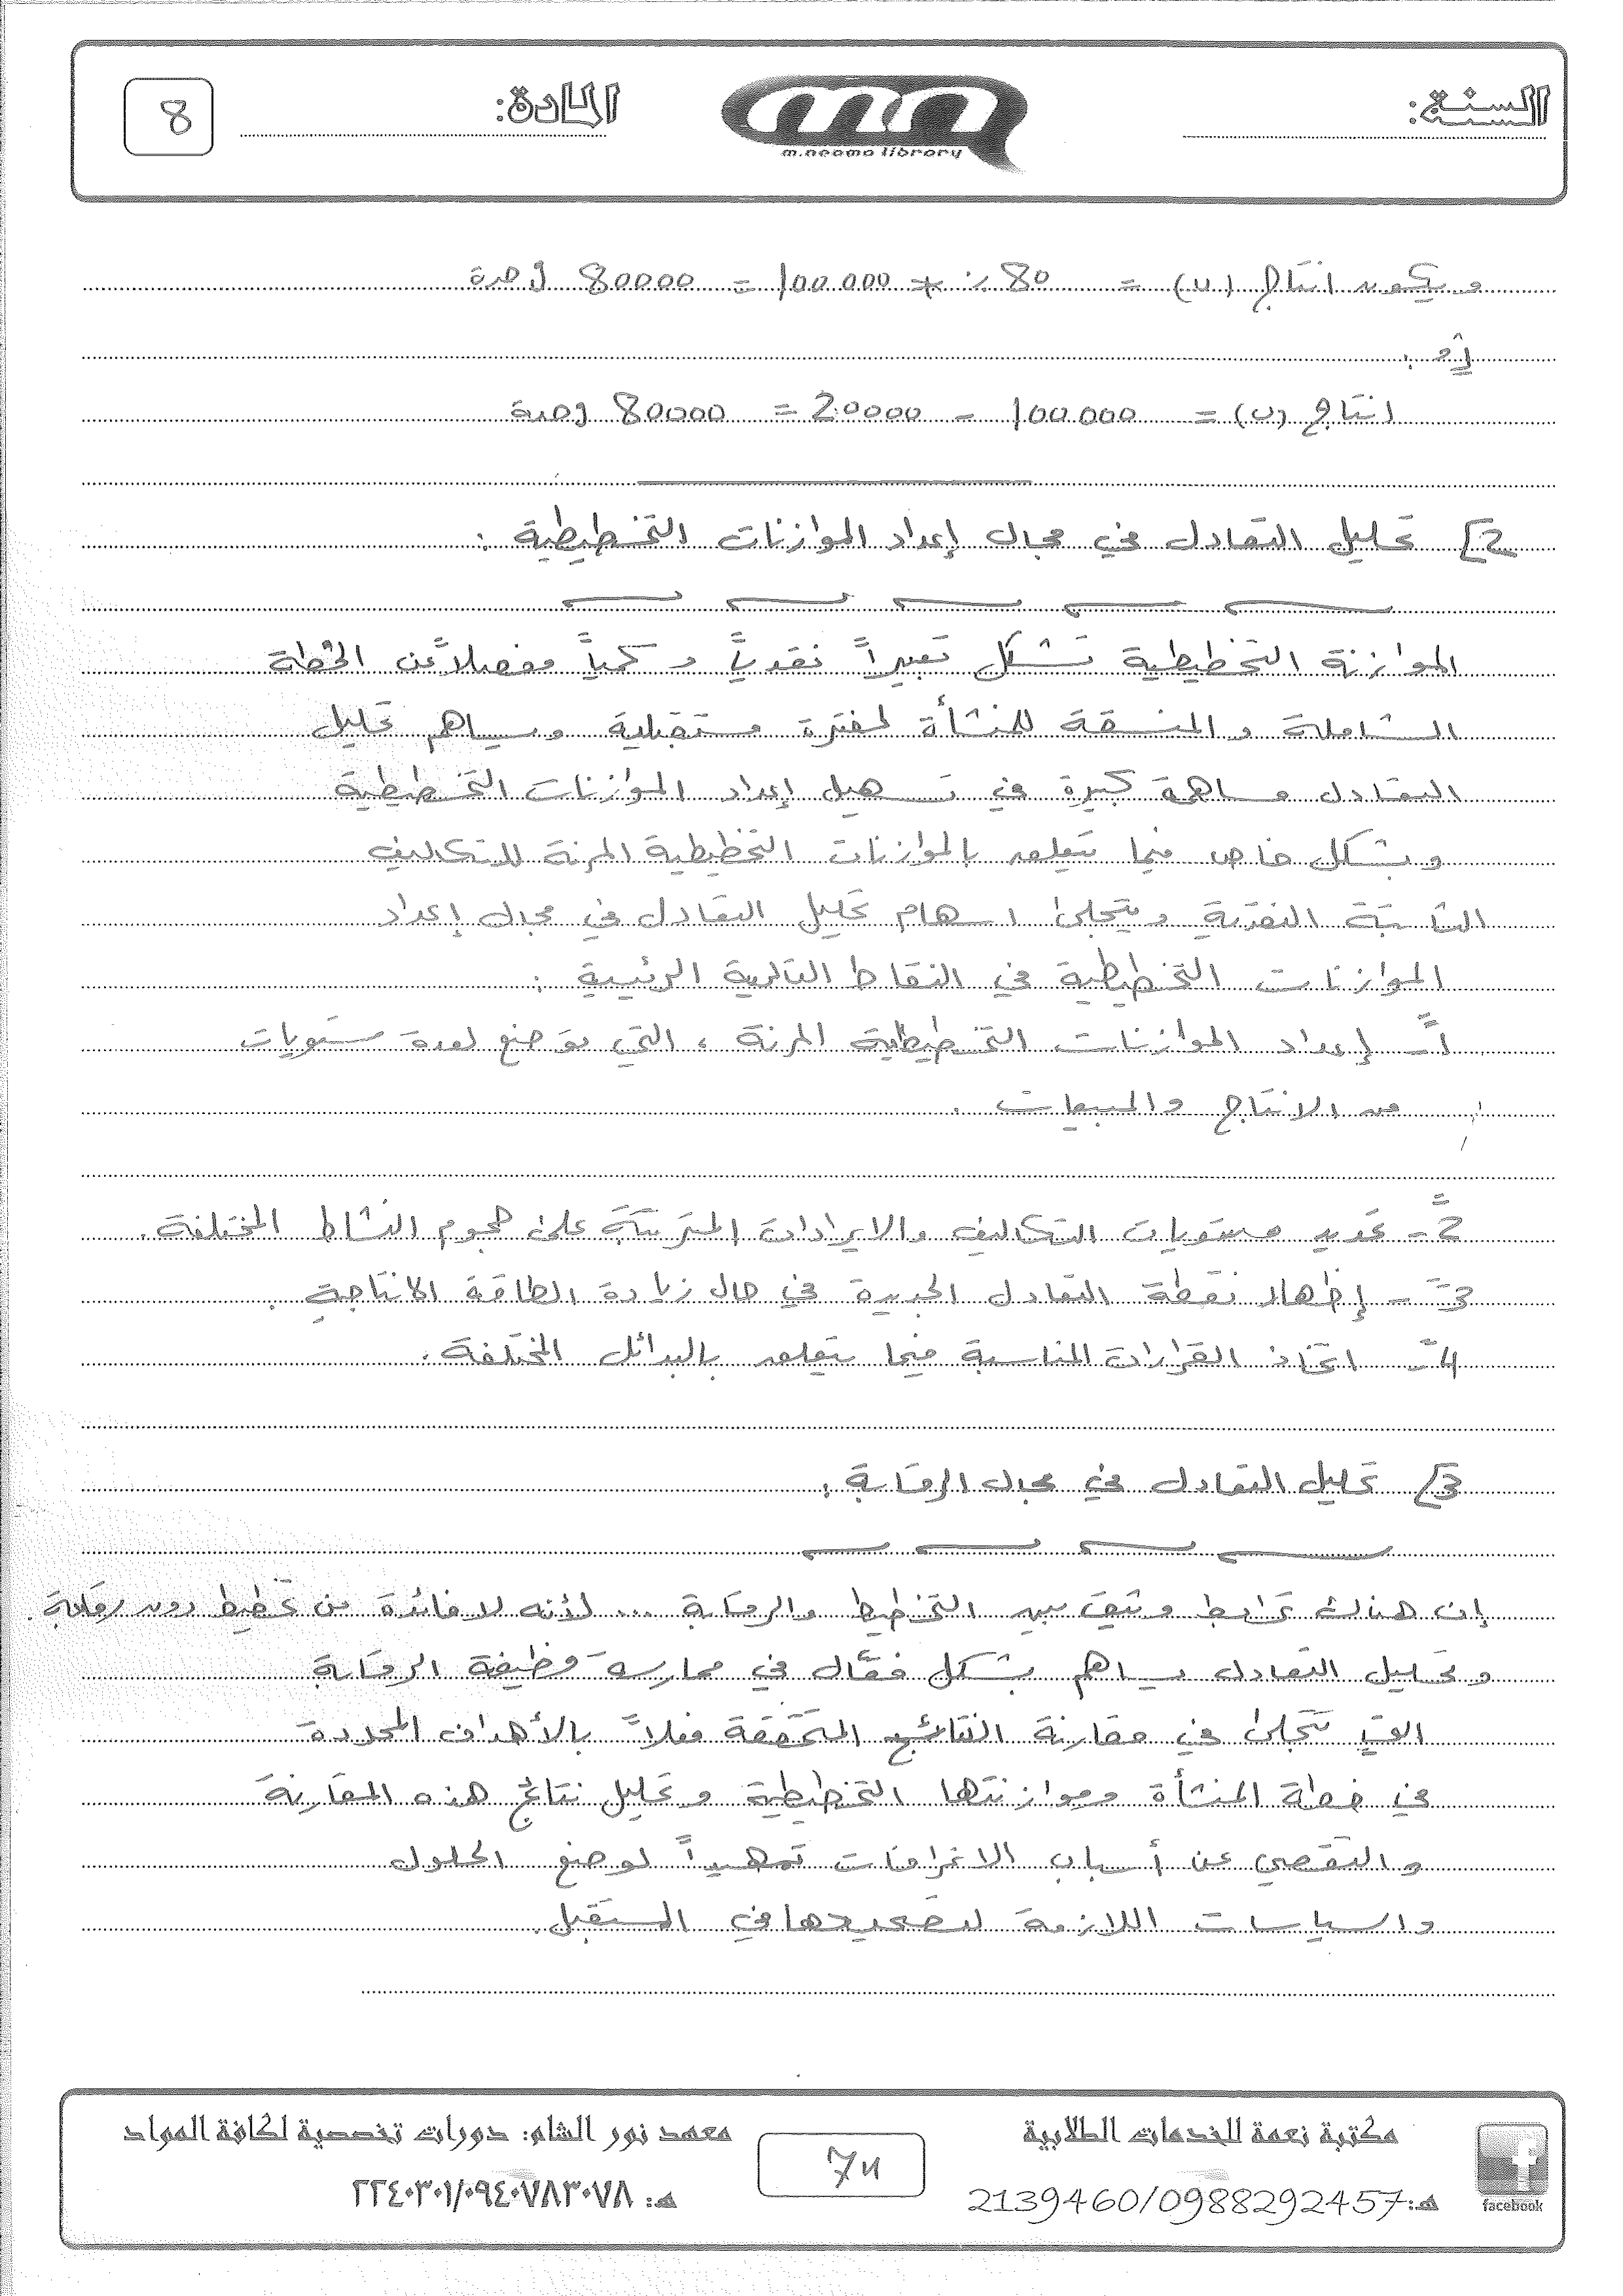 السنة:
m.neama library
المادة:
8
ويكون انتاج (ں) = 80 ٪ * 100.000 = 80000 وحدة
أو :
انتاج (ں) = 100.000 - 20000 = 80000 وحدة
2] تحليل التعادل في مجال إعداد الموازنات التخطيطية :
الموازنة التخطيطية تشكل تعبيراً نقدياً وكمياً مفصلاً عن الخطة
الشاملة والمنسقة للمنشأة لفترة مستقبلية ويساهم تحليل
التعادل مساهمة كبيرة في تسهيل إعداد الموازنات التخطيطية
وبشكل خاص فيما يتعلق بالموازنات التخطيطية المرنة للتكاليف
الثابتة النقدية ويتجلى اسهام تحليل التعادل في مجال إعداد
الموازنات التخطيطية في النقاط التالية الرئيسية :
1ً- إعداد الموازنات التخطيطية المرنة ، التي توضع لعدة مستويات
من الانتاج والمبيعات .
2ً- تحديد مستويات التكاليف والايرادات المترتبة على حجوم النشاط المختلفة.
3ً- إظهار نقطة التعادل الجديدة في حال زيادة الطاقة الانتاجية .
4ً- اتخاذ القرارات المناسبة فيما يتعلق بالبدائل المختلفة.
3] تحليل التعادل في مجال الرقابة :
إن هناك ترابط وثيق بين التخطيط والرقابة ... لأنه لا فائدة من تخطيط دون رقابة.
وتحليل التعادل يساهم بشكل فعّال في ممارسة وظيفة الرقابة
التي تتجلى في مقارنة النتائج المتحققة فعلاً بالأهداف المحددة
في خطة المنشأة وموازنتها التخطيطية وتحليل نتائج هذه المقارنة
والتقصي عن أسباب الانحرافات تمهيداً لوضع الحلول
والسياسات اللازمة لتصحيحها في المستقبل.
مكتبة نعمة للخدمات الطلابية
هـ:2139460/0988292457
facebook
74
معهد نور الشام: دورات تخصصية لكافة المواد
هـ: ٢٢٤٠٣٠١/٠٩٤٠٧٨٣٠٧٨